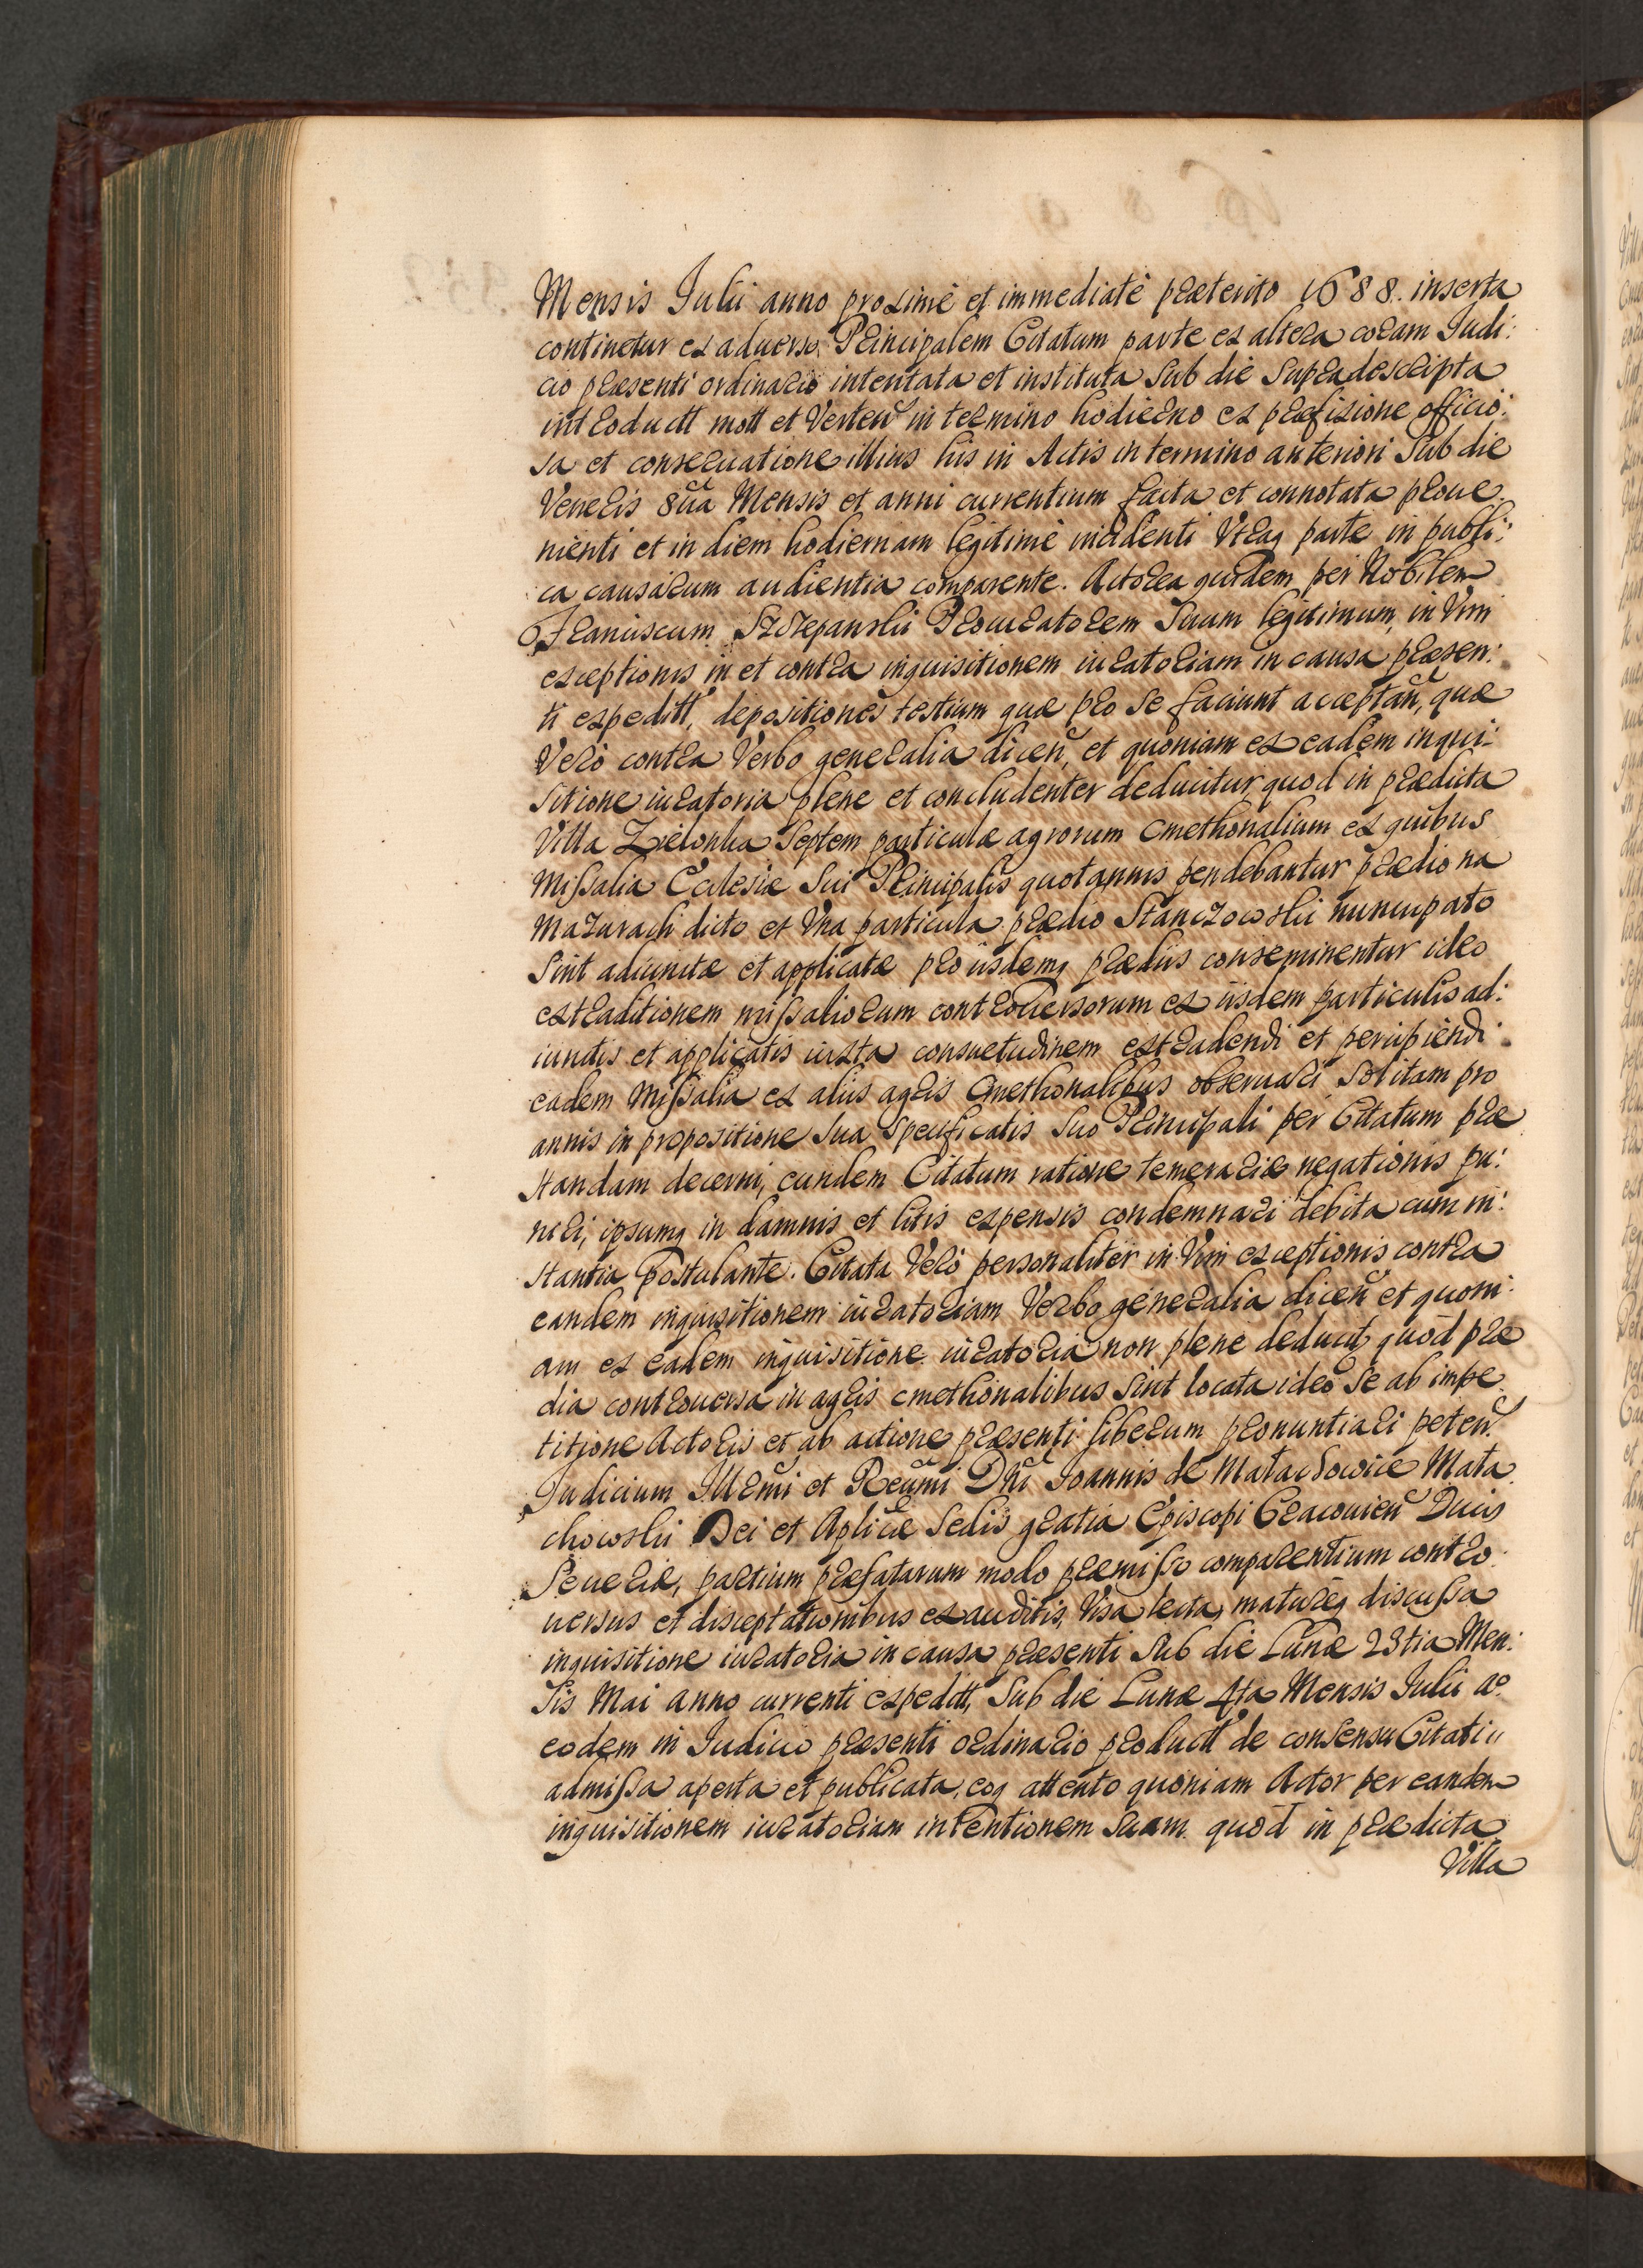 Mensis Julii anno proximè et immediatè præterito 1688. inserta
continetur ex aduerso Principalem Citatum parte ex altera coram Judi:
cio præsenti ordinario intentata et instituta Sub die Supradescripta
introductt mott et Verteñ in termino hodierno ex præfixione officio:
sa et conseruatione illius his in Actis in termino anteriori Sub die
Veneris 8ua Mensis et anni currentium facta et connotata proue:
nienti et in diem hodiernam legitimè incidenti Vtraq parte in publi:
ca causarum audientia comparente. Actorea quidem per Nobilem
Franciscum Szczepanski Procuratorem Suum legitimum, in Vim
exceptionis in et contra inquisitionem iuratoriam in causa præsen:
ti expeditt, depositiones testium quæ pro se faciunt acceptañ, quæ
Verò contra Verbo generalia diceñ, et quoniam ex eadem inqui:
sitione iuratoria plene et concludenter deducitur quod in prædicta
Villa Zielonka Septem particulæ agrorum Cmethonalium ex quibus
Missalia Ecclesiæ Sui Principalis quotannis pendebantur prædio na
Mazurach dicto et Vna particula prædio Stanczowski nuncupato
Sint adiunctæ et applicatæ pro iisdemq prædiis conseminentur ideo
extraditionem missaliorum controuersorum ex iisdem particulis ad:
iunctis et applicatis iuxta consuetudinem extradendi et percipiendi
eadem Missalia ex aliis agris Cmethonalibus obseruari Solitam pro
annis in propositione sua Specificatis Suo Principali per Citatum præ
standam decerni, eundem Citatum ratione temerariæ negationis pu:
niri, ipsumq in damnis et litis expensis condemnari debita cum in:
stantia postulante. Citata Verò personaliter in Vim exceptionis contra
eandem inquisitionem iuratoriam Verbo generalia diceñ et quoni:
am ex eadem inquisitione iuratoria non plene deducit quòd præ
dia controuersa in agris cmethonalibus Sint locata ideo Se ab impe
titione Actoris et ab actione præsenti liberum pronuntiari peteñ.
Judicium Illrmi et Reũmi Dñi Joannis de Małachowice Mała
chowski Dei et Aplicæ Sedis gratia Episcopi Cracouieñ Ducis
Seueriæ, partium præfatarum modo præmisso comparentium contro
uersus et disceptationibus exauditis, Visa lecta, matureq discussa
inquisitione iuratoria in causa præsenti Sub die Lunæ 23tia Men:
sis Mai anno currenti expeditt, Sub die Lunæ 4ta Mensis Julii aº
eodem in Judicio præsenti ordinario productt de consensu Citati
admissa aperta et publicata, eoq attento quoniam Actor per eandem
inquisitionem iuratoriam intentionem Suam quòd in prædicta
Villa